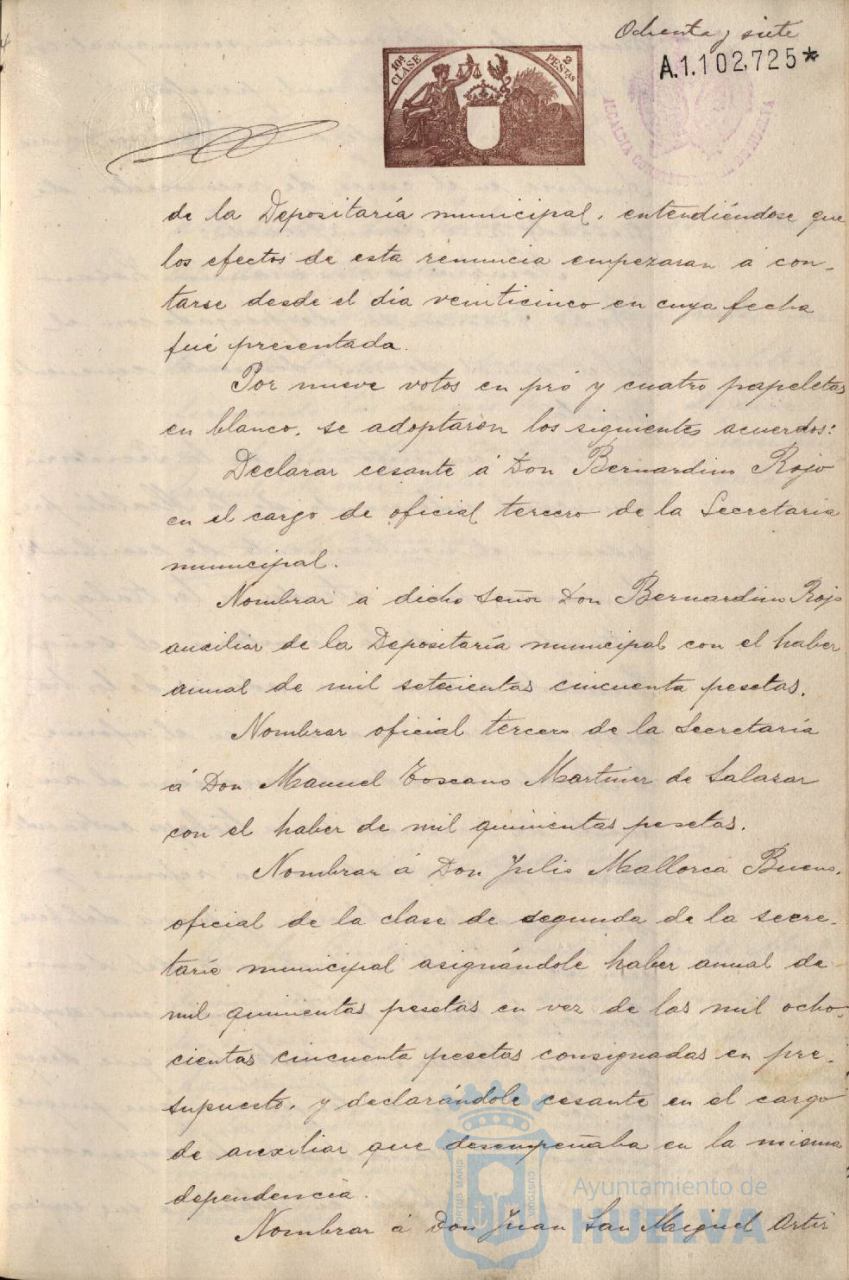 Ochenta y siete
A.1.102,725*
10ª CLASE
2 PESTAS
ALCALDIA
de la Depositaría municipal, entendiéndose que
los efectos de esta renuncia empezaran á con-
tarse desde el día veinticinco en cuya fecha
fué presentada.
Por nueve votos en pró y cuatro papeletas
en blanco, se adoptaron los siguientes acuerdos:
Declarar cesante á Don Bernardino Rojo
en el cargo de oficial tercero de la Secretaria
municipal.
Nombrar á dicho Señor Don Bernardino Rojo
auxiliar de la Depositaría municipal con el haber
anual de mil setecientas cincuenta pesetas.
Nombrar oficial tercero de la Secretaría
á Don Manuel Toscano Martinez de Salazar
con el haber de mil quinientas pesetas.
Nombrar á Don Julio Mallorca Bueno,
oficial de la clase de segunda de la secre-
taría municipal asignándole haber anual de
mil quinientas pesetas en vez de las mil ocho-
cientas cincuenta pesetas consignadas en pre-
supuesto, y declarándole cesante en el cargo
de auxiliar que desempeñaba en la misma
dependencia.
Nombrar á Don Juan San Miguel Ortiz
Ayuntamiento de
HUELVA